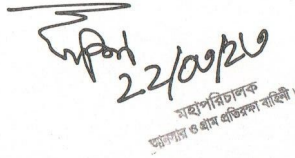 ২২/০৩/২৩
মহাপরিচালক
আনসার ও গ্রাম প্রতিরক্ষা বাহিনী।